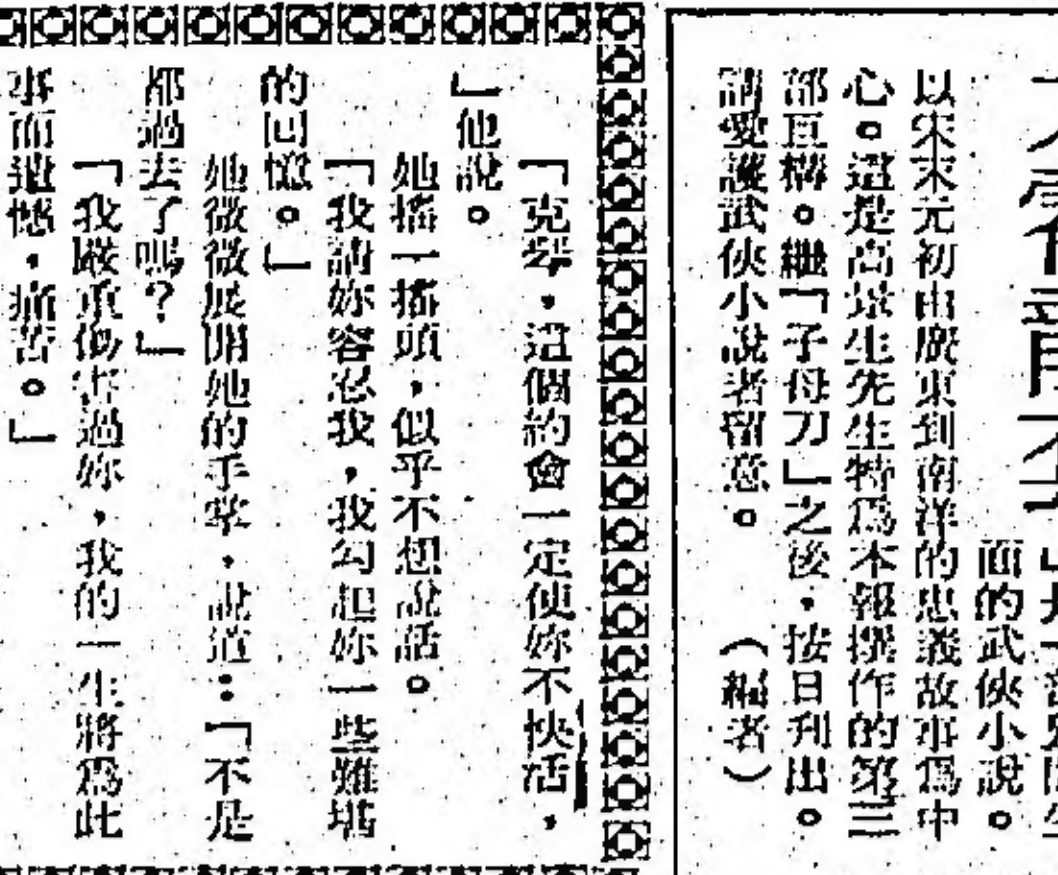 面的武俠小說。
以宋末元初由廣東到南洋的忠義故事爲中
心。這是高景生先生特爲本報撰作的第三
部巨構。繼「子母刀」之後,按日刋出。
請愛護武俠小說者留意。 (編者)
「克琴,這個約會一定使妳不快活,
」他說。
她搖一搖頭,似乎不想說話。
「我請妳容忍我,我勾起妳一些難堪
的回憶。」
她微微展開她的手掌,說道:「不是
都過去了嗎?」
「我嚴重傷害過妳,我的一生將爲此
事而遺憾,痛苦。」